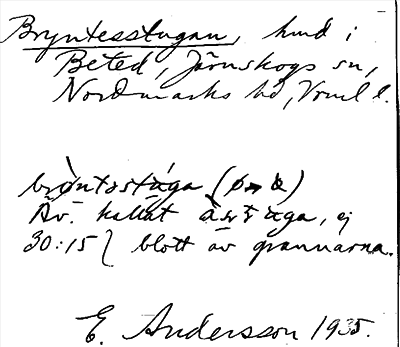 Bryntesstugan, hmd i
Beted, Järnskogs sn,
Nordmarks hd, Vrml l.
brøntsstúga (ø
Äv. kallat, ej
30:15 blott av grannarna.
E. Andersson 1935.